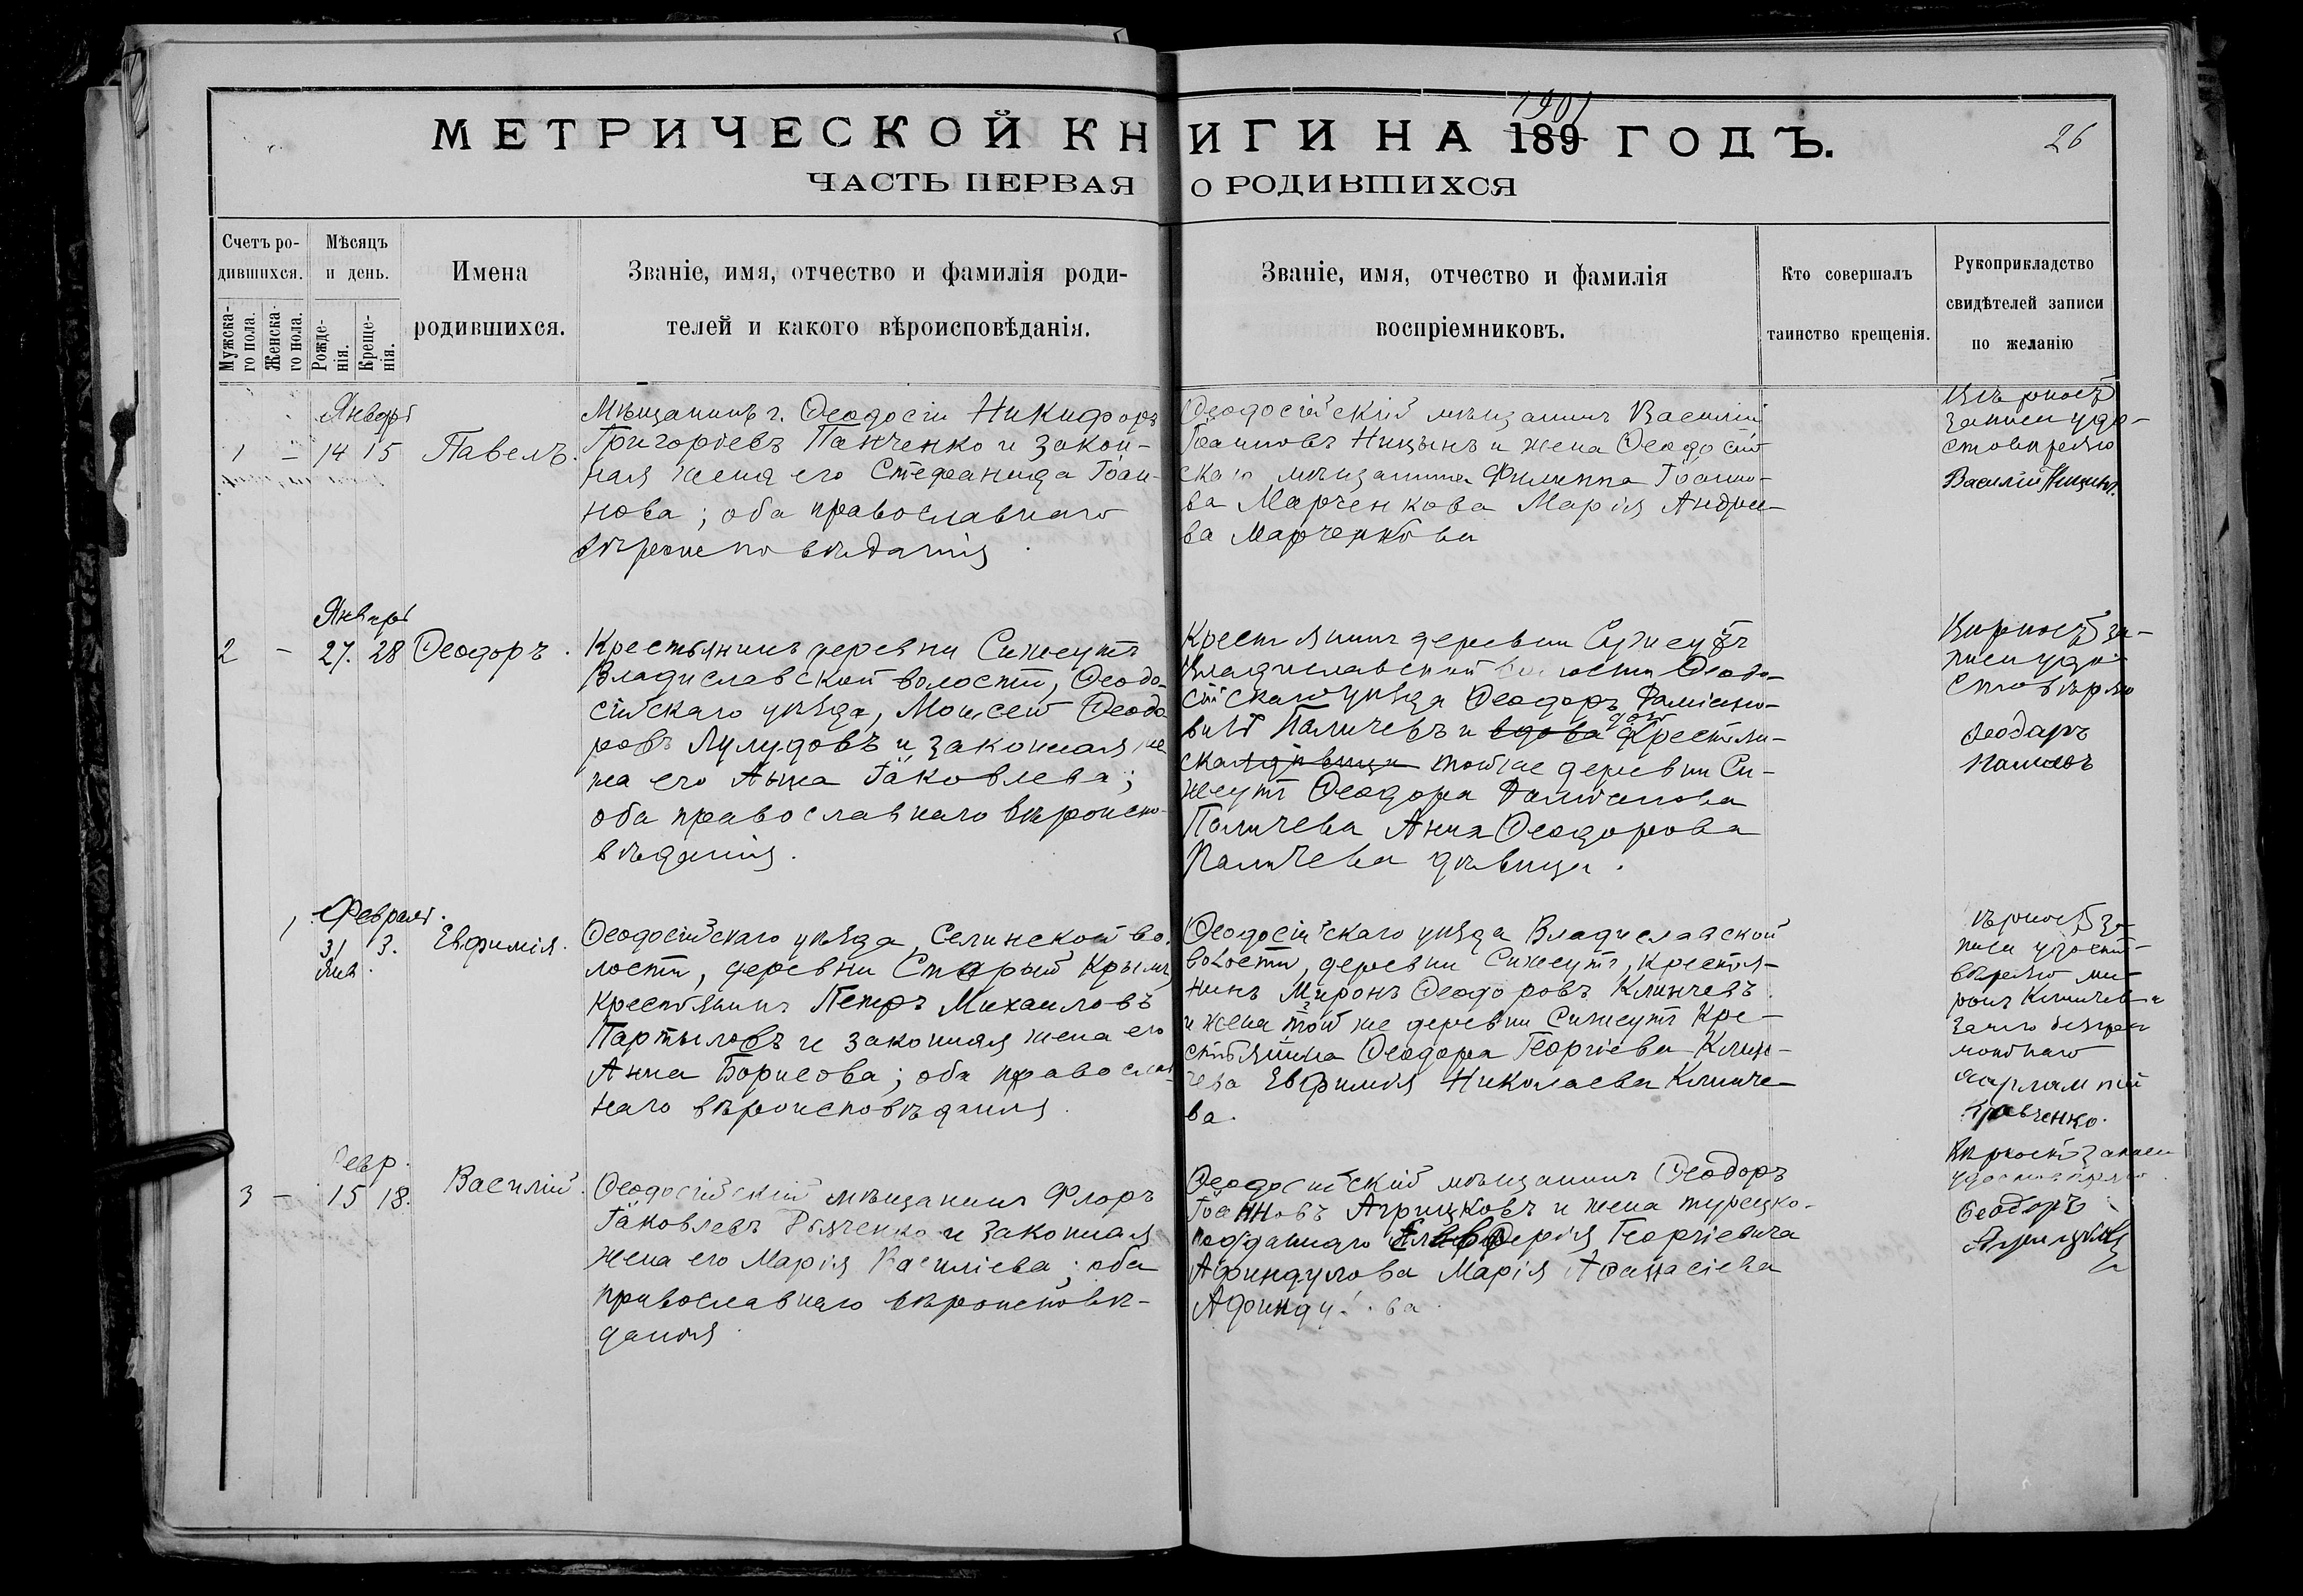 1901
МЕТРИЧЕСКОЙ КНИГИ НА 189 ГОДЪ.
26
ЧАСТЬ ПЕРВАЯ О РОДИВШИХСЯ
Счетъ ро-
дившихся.
Мужска-
го пола.
Женска-
го пола.
Мѣсяцъ
и день.
Рожде-
нія.
Креще-
нія.
Имена
родившихся.
Званіе, имя, отчество и фамилія роди-
телей и какого вѣроисповѣданія.
Званіе, имя, отчество и фамилія
воспріемниковъ.
Кто совершалъ
таинство крещенія.
Рукоприкладство
свидѣтелей записи
по желанію
Январь
1 – 14 15 Павелъ.
Мѣщанинъ г. Ѳеодосіи Никифоръ
Григоріевъ Панченко и закон-
ная жена его Стефанида Іоан-
нова; оба православнаго
вѣроисповѣданія.
Ѳеодосійскій мѣщанинъ Василій
Іоанновъ Ницынъ и жена Ѳеодосій-
скаго мѣщанина Филиппа Іоанно-
ва Марченкова Марія Андрее-
ва Марченкова
Вѣрность
записи удо-
стовѣряю
Василій Ницынъ.
Январь
2 – 27. 28 Ѳеодоръ.
Крестьянинъ деревни Сижеутъ
Владиславской волости, Ѳеодо-
сійскаго уѣзда, Моисей Ѳеодо
ровъ Лулудовъ и законная же
на его Анна Іаковлева;
оба православнаго вѣроиспо-
вѣданія.
Крестьянинъ деревни Сижеутъ
Владиславской волости Ѳеодо-
сійскаго уѣзда Ѳеодоръ
Паличевъ и вдова крестьян-
той же деревни Си-
жеутъ Ѳеодора
Паличева Анна Ѳеодорова
Паличева дѣвица.
Вѣрность за-
писи удо-
стовѣряю
Ѳеодаръ
Февраль.
1 31 3. Евфимія.
Янв.
Ѳеодосійскаго уѣзда, Салинской во-
лости, деревни Старый Крымъ
крестьянинъ Петръ Михаиловъ
Партыловъ и законная жена его
Анна Борисова; оба православ-
наго вѣроисповѣданія.
Ѳеодосійскаго уѣзда Владиславской
волости, деревни Сижеутъ, крестья-
нинъ Миронъ Ѳеодоровъ Клинчевъ
и жена той же деревни Сижеутъ кре-
стьянина Ѳеодора Георгіева Клин-
чева Евфимія Николаева Клинче-
ва.
вѣрность за-
писи удосто-
вѣряю ми-
ронъ Клинчевъ а
за него безграм
мотнаго
Харлампій
Кравченко.
Февр.
3 – 15 18. Василій.
Ѳеодосійскій мѣщанинъ Флоръ
Іаковлевъ и законная
жена его Марія Василіева; оба
православнаго вѣроисповѣ-
данія.
Ѳеодосійскій мѣщанинъ Ѳеодоръ
Іоанновъ Агрицковъ и жена турецко-
подданнаго Георгіевича
Афиндулова Марія Аѳанасіева
Афиндулова.
Вѣрность записи
удостовѣряю
Ѳеодоръ
Агрицковъ